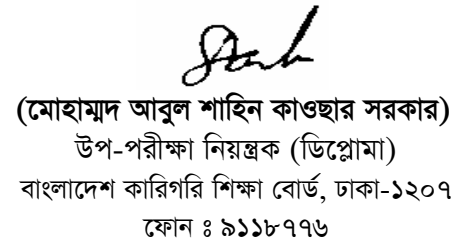 (মোহাম্মদ আবুল শাহিন কাওছার সরকার)
উপ-পরীক্ষা নিয়ন্ত্রক (ডিপ্লোমা)
বাংলাদেশ কারিগরি শিক্ষা বোর্ড, ঢাকা-১২০৭
ফোন ঃ ৯১১৮৭৭৬